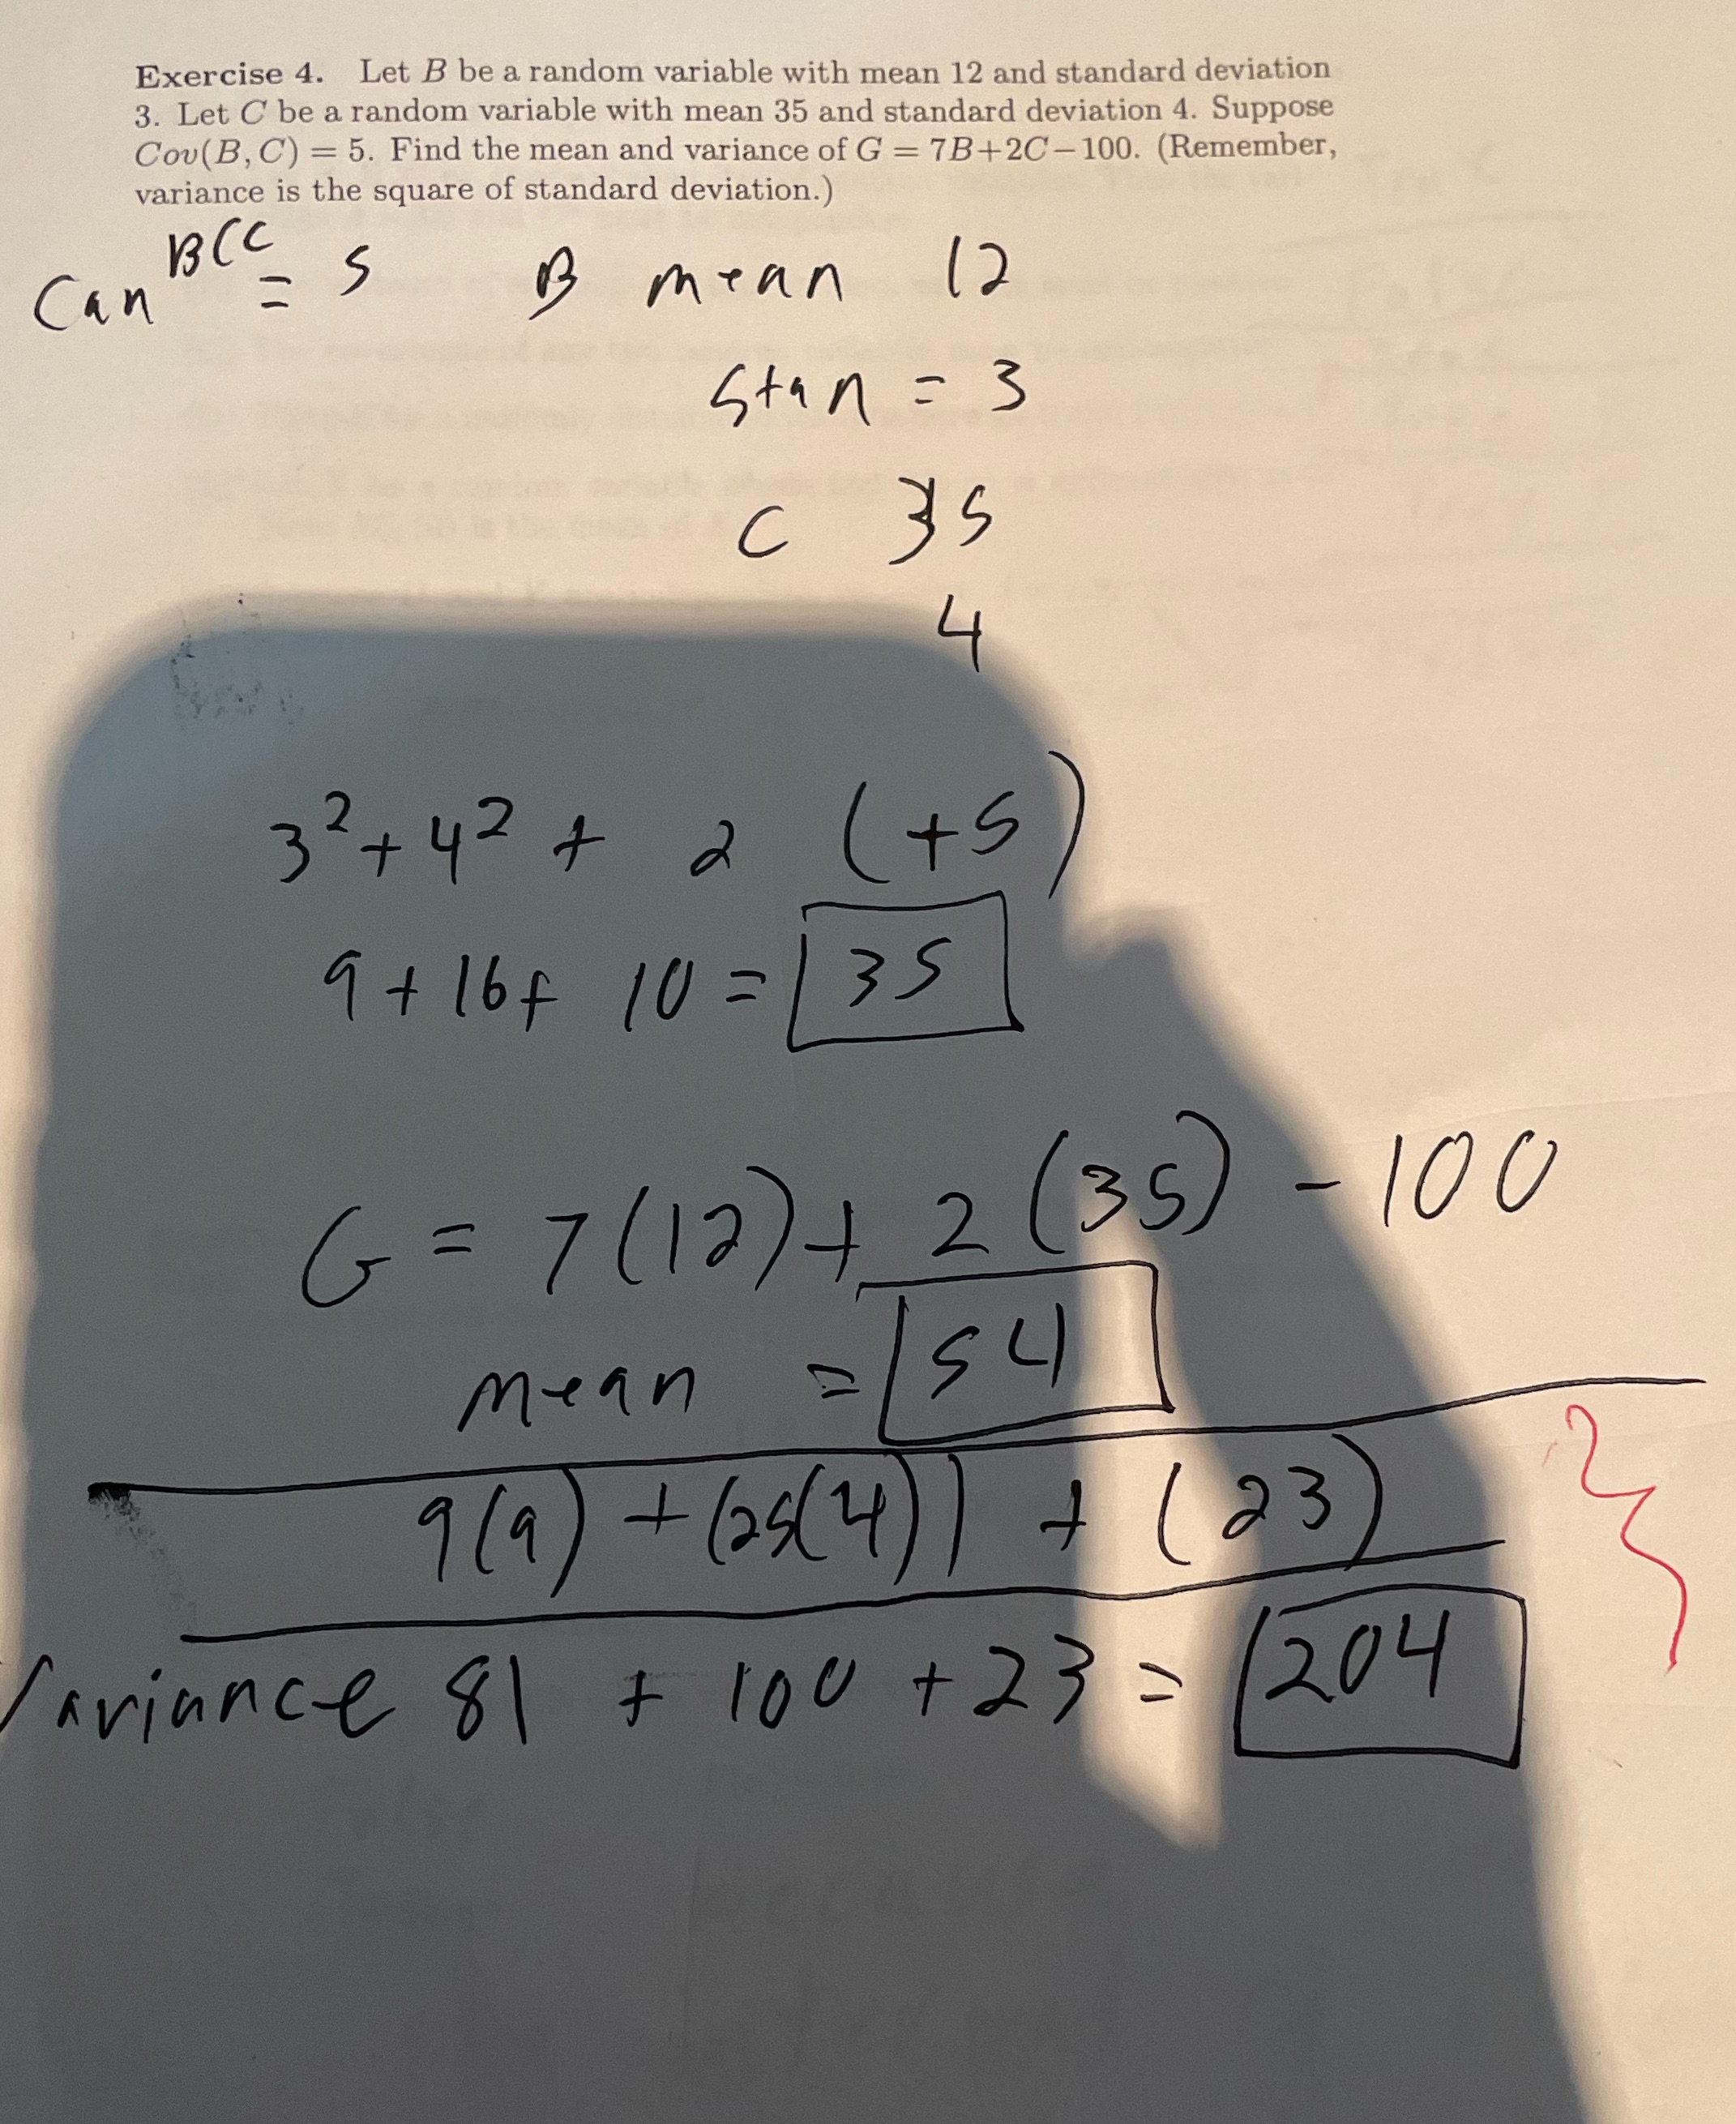 Exercise 4. Let B be a random variable with mean 12 and standard deviation
3. Let C be a random variable with mean 35 and standard deviation 4. Suppose
Cov(B, C) = 5. Find the mean and variance of G = 7B+2C−100. (Remember,
variance is the square of standard deviation.)
Can BCC = 5 B mean 12
stan = 3
C 35
4
3² + 4² + 2 (+5)
9 + 16 + 10 = 35
G = 7(12) + 2(35) - 100
mean = 54
9(9) + (25(4)) + (23)
Variance 81 + 100 + 23 = 204